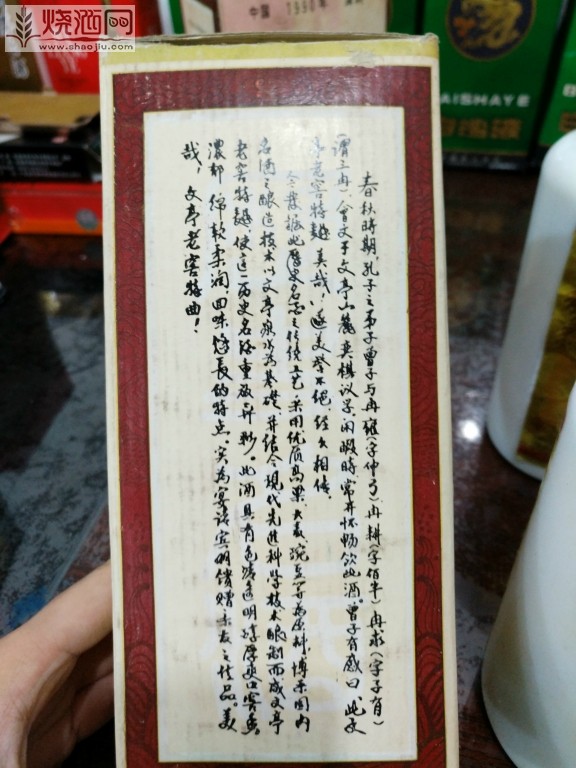 烧酒网
www.shaojiu.com
中國 1998年
AISHAYE
春秋時期，孔子之弟子曾子与冉雍（字仲弓）冉耕（字伯牛）冉求（字子有）
（謂三冉）會文于文亭山麓 奕棋议学 闲暇時常开怀畅饮此酒。曾子有感曰 此文
亭老窖特麯 美哉！遂美誉不绝，经久相传。
今我据此歷史名酒之传统工艺 采用优质高粱 大麦 豌豆等为原料，博采国内
名酒之釀造技术 以文亭泉水为基礎 并结合现代先進科学技术釀制而成文亭
老窖特麯 使這一历史名酒重放异彩。此酒具有色清透明 醇厚爽口 窖香
濃郁 绵软柔润，回味悠長的特点。实为宴请宾朋 馈赠亲友之佳品。美
哉，文亭老窖特曲！